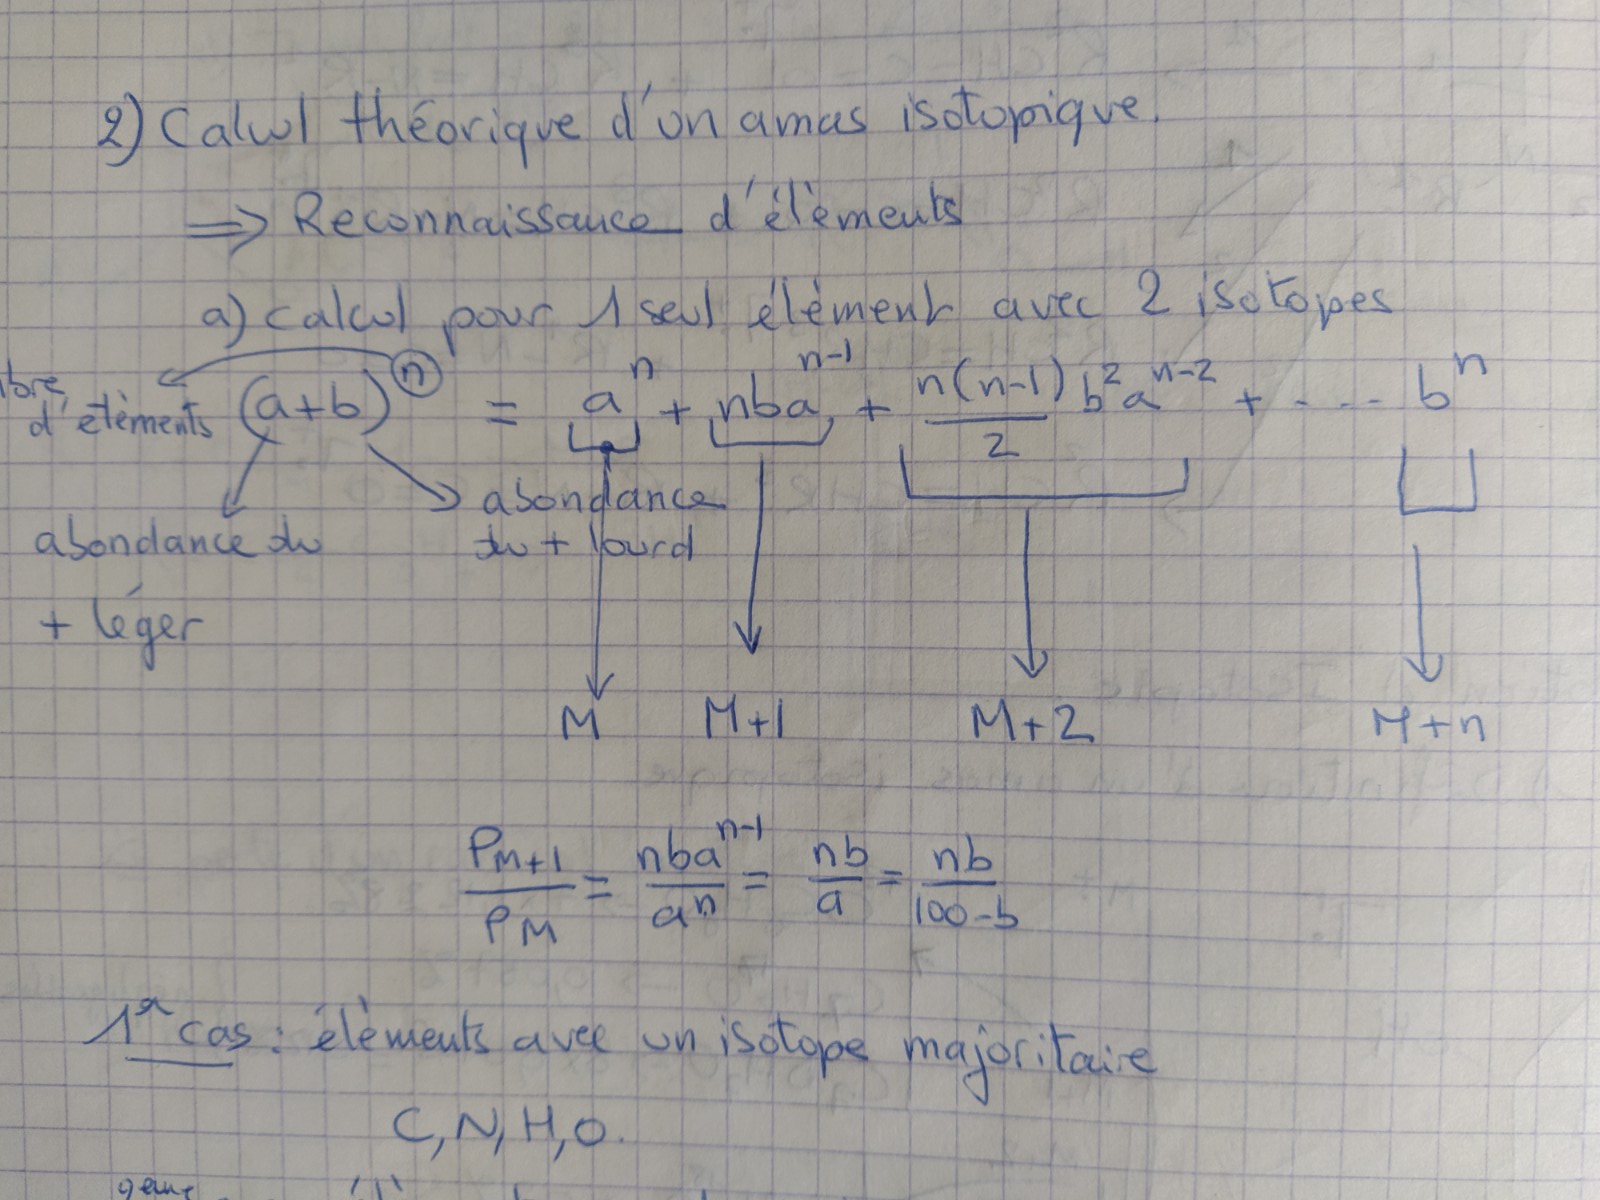 2) Calcul théorique d'un amas isotopique.
⇒ Reconnaissance d'élèments
a) calcul pour 1 seul élèment avec 2 isotopes
d'élèments (a+b)^n = a^n + nba^(n-1) + n(n-1)/2 b²a^(n-2) + - - - - b^n
abondance du + léger
abondance du + lourd
M M+1 M+2 M+n
P_(M+1)/P_M = nba^(n-1)/a^n = nb/a = nb/(100-b)
1er cas : élèments avec un isotope majoritaire
C, N, H, O.